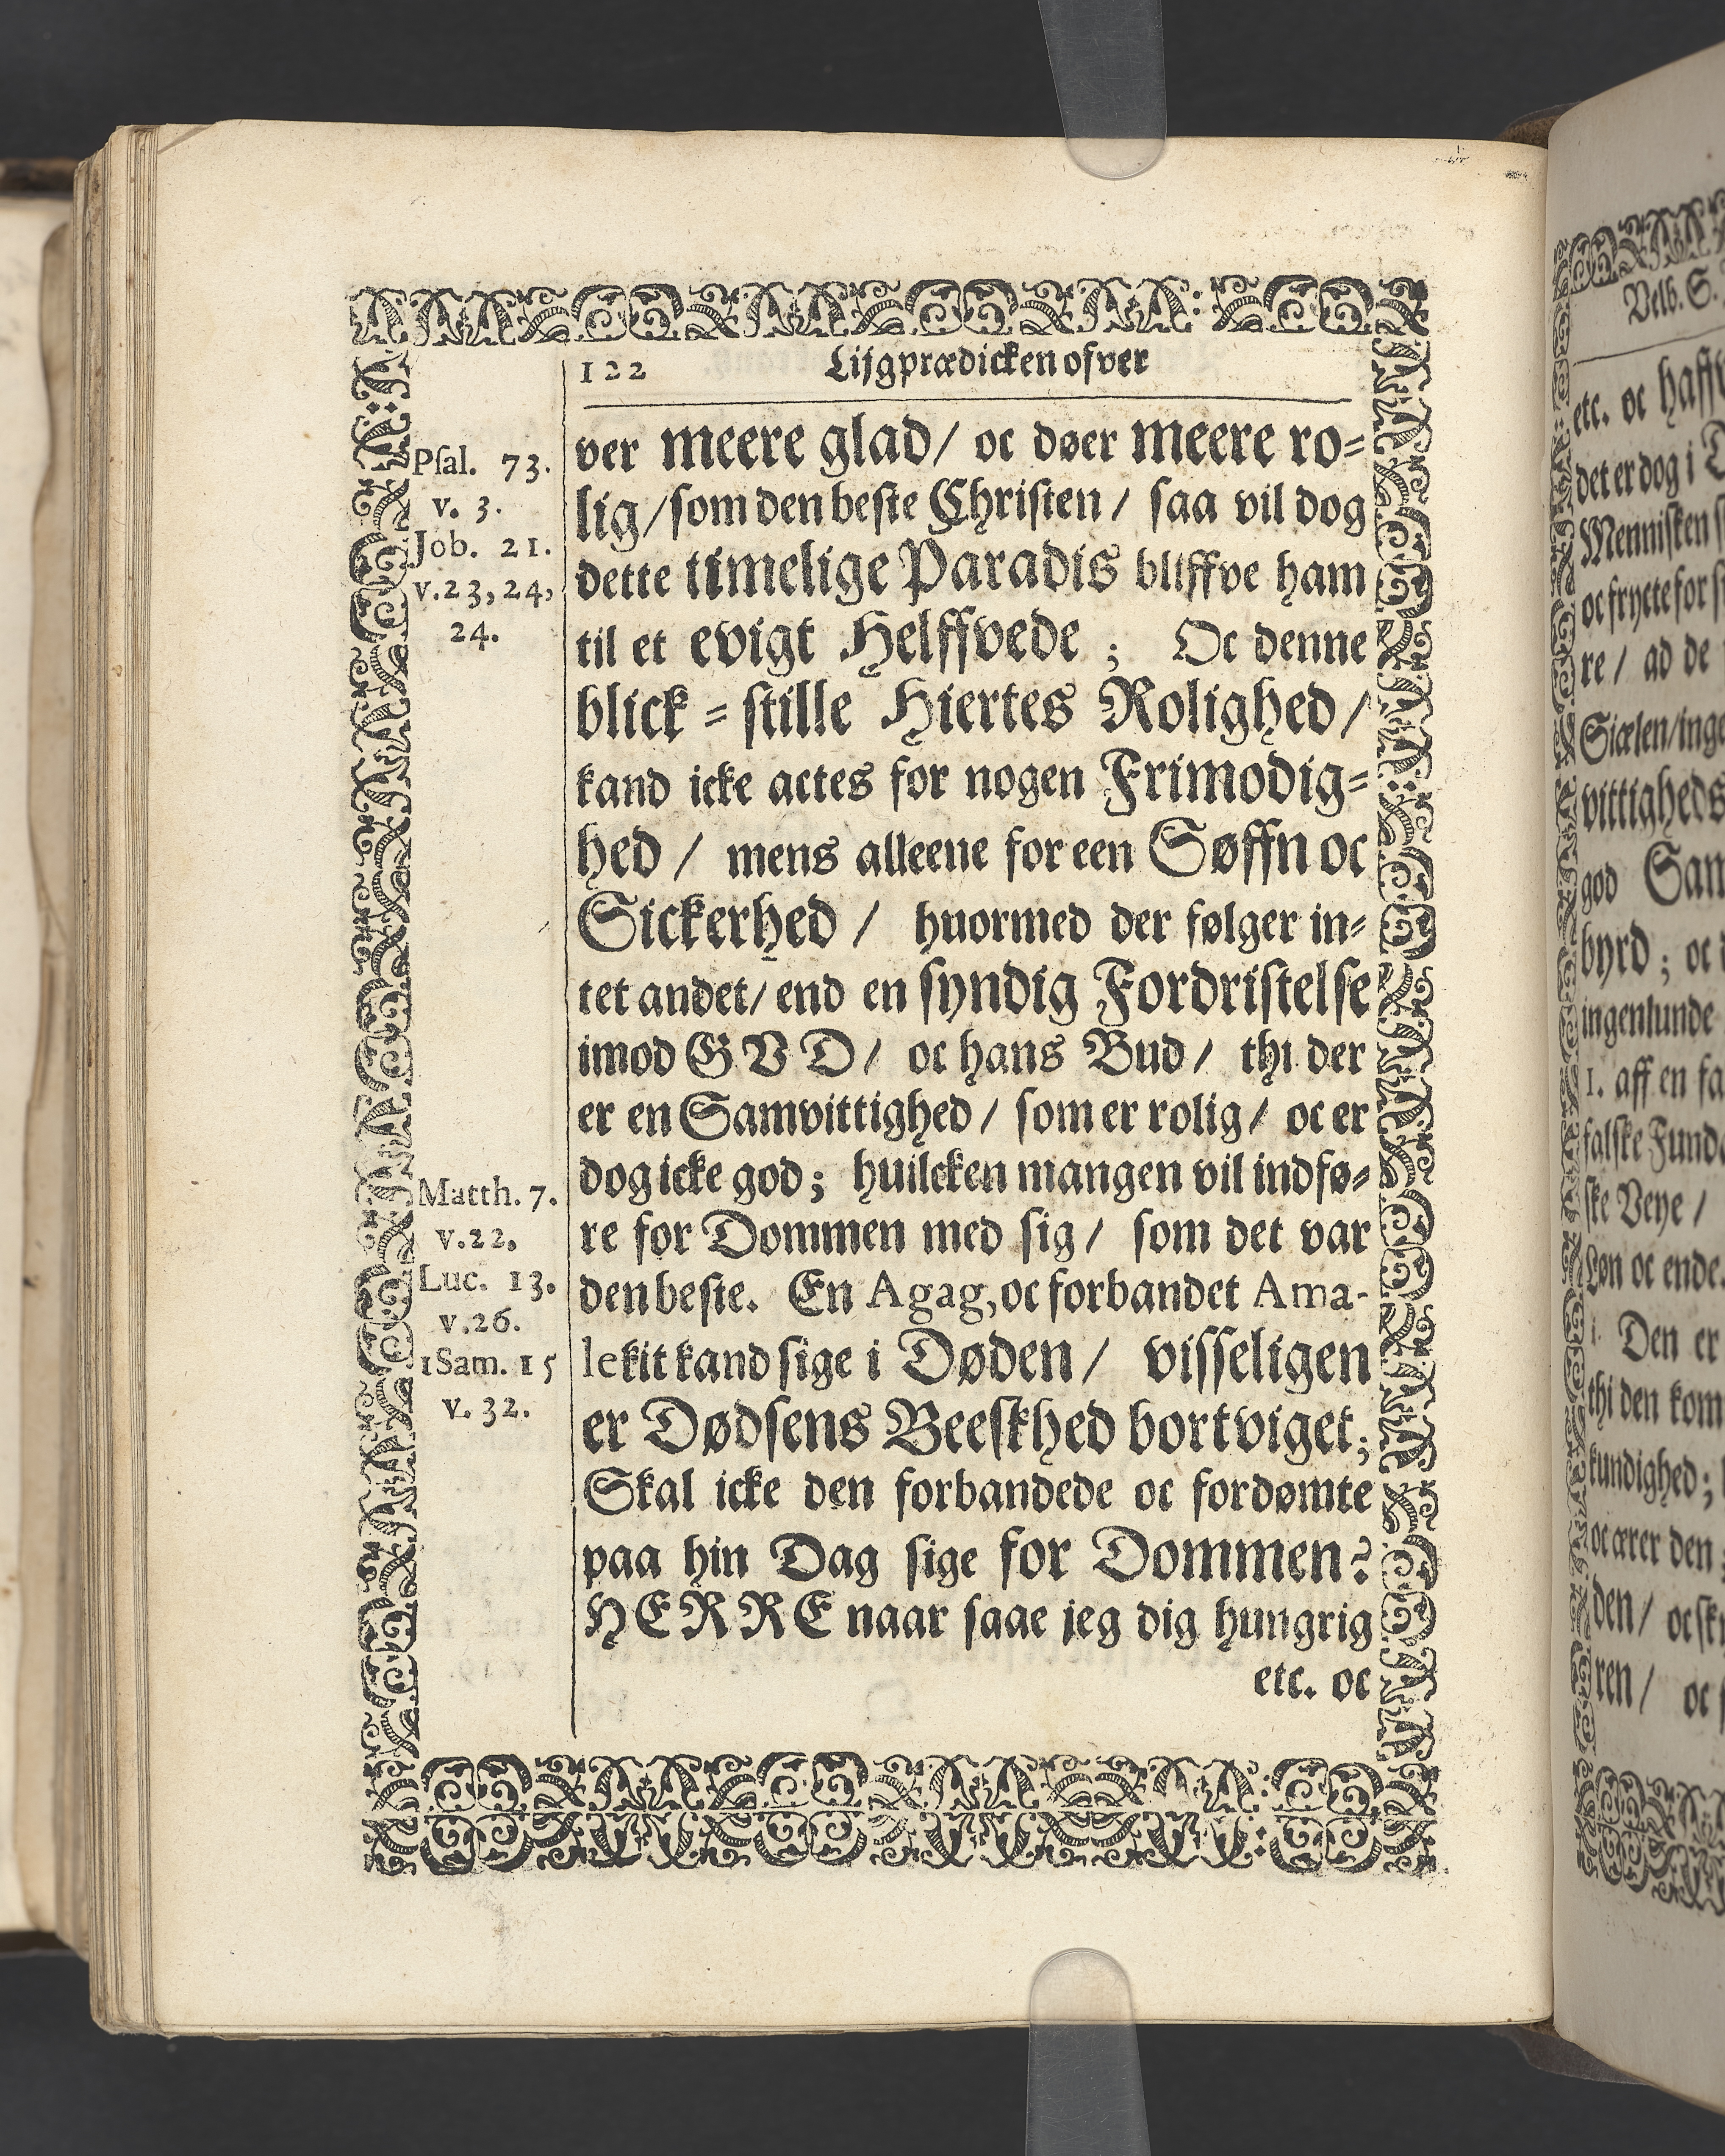 122 Lijgprædicken ofver
ver meere glad/ oc døer meere ro=
lig/ som den beste Christen/ saa vil dog
dette timelige Paradis bliffve ham
til et evigt Helffvede ; Oc denne
blick = stille Hiertes Rolighed/
kand icke actes for nogen Frimodig=
hed / mens alleene for een Søffn oc
Sickerhed / huormed der følger in=
tet andet/ end en syndig Fordristelse
imod GVD/ oc hans Bud/ thi der
er en Samvittighed/ som er rolig/ oc er
dog icke god; huilcken mangen vil indfø=
re for Dommen med sig/ som det var
den beste. En Agag, oc forbandet Ama-
lekit kand sige i Døden/ visseligen
er Dødsens Beeskhed bortviget;
Skal icke den forbandede oc fordømte
paa hin Dag sige for Dommen?
HERRE naar saae jeg dig hungrig
etc. oc
Psal. 73.
v. 3.
Job. 21.
v.23,24,
24.
Matth. 7.
v.22.
Luc. 13.
v.26.
1Sam. 15
v. 32.
Velb. S.
etc. oc
det er dog i
Mennisken
oc frycte for
re/ ad de
Siælen/
vittigheds
god
byrd; oc
ingenlunde
1. aff en
falske
ske Veye/
Løn oc ende.
Den er
thi den
kundighed;
oc ærer den
den/
ren/ oc